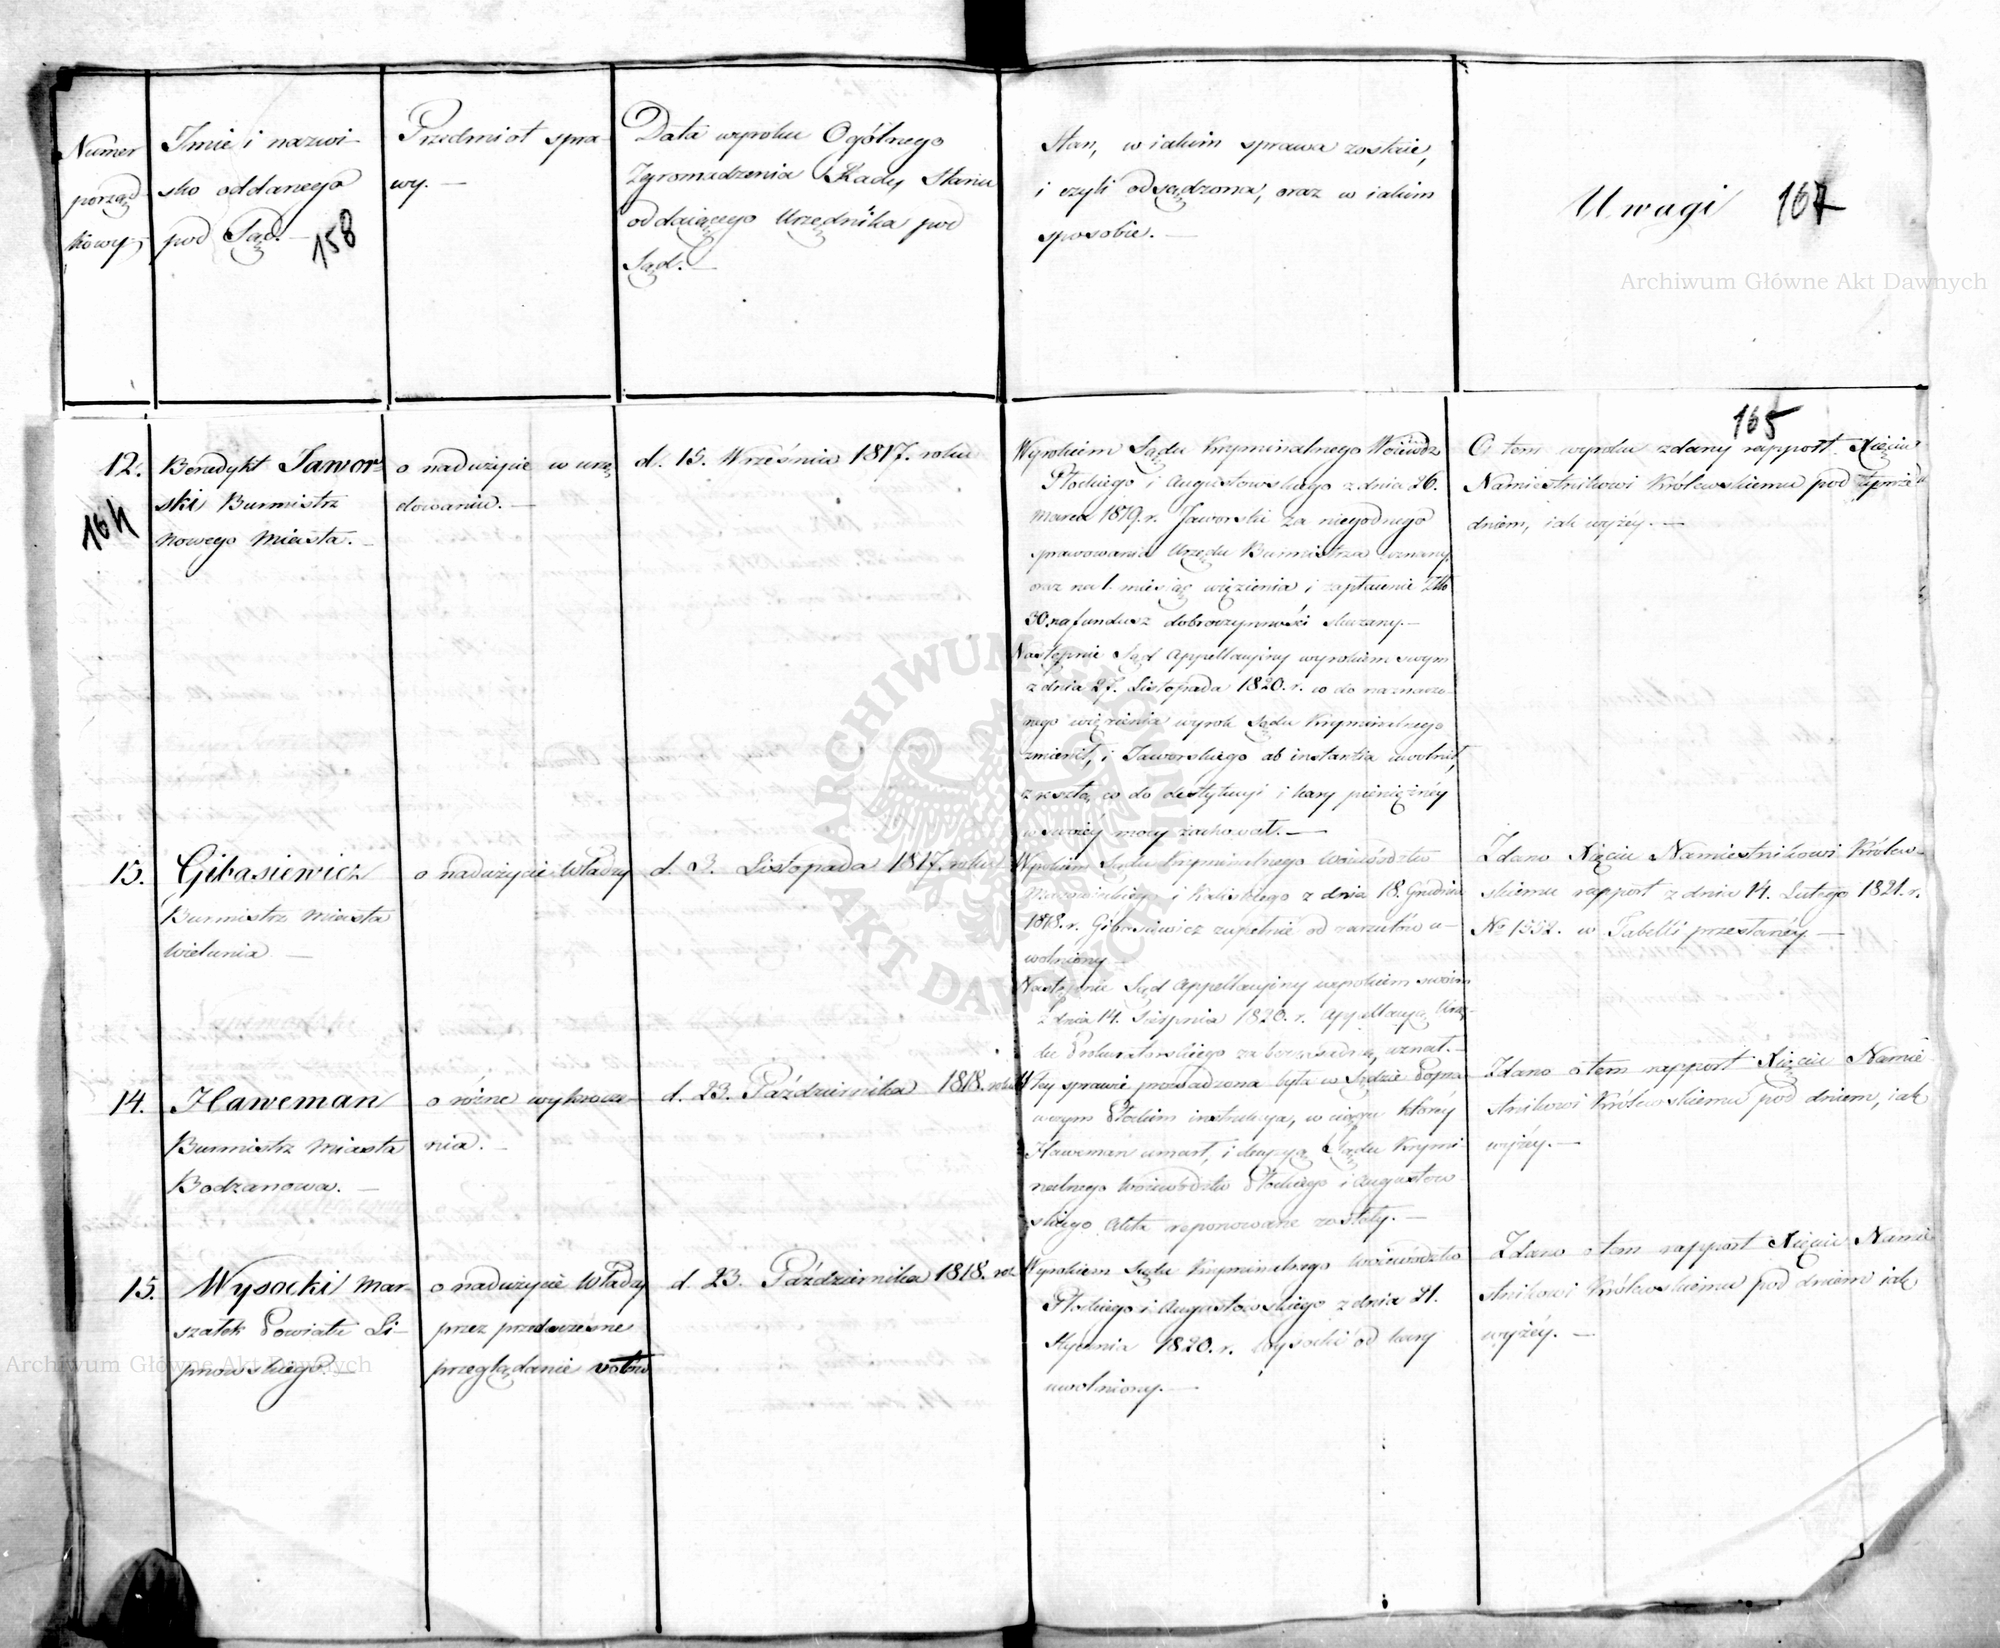 Numer
porząd-
kowy
Imie i nazwi-
sko oddanego
pod Sąd. —
158
Przedmiot spra-
wy. —
Data wyroku Ogólnego
Zgromadzenia Rady Stanu
oddaiącego Urzędnika pod
Sąd. —
Stan, w iakim sprawa zostaie,
i czyli odsądzona, oraz w iakim
sposobie. —
Uwagi
167
Archiwum Główne Akt Dawnych
165
12.
164
Benedykt Jawor-
ski Burmistrz
Nowego Miasta. —
o nadużycie w urzę
dowaniu. —
d. 15. Września 1817. roku
Wyrokiem Sądu Kryminalnego Woiewdz
Płockiego i Augustowskiego z dnia 26.
Marca 1819. r. Jaworski za niegodnego
sprawowania Urzędu Burmistrza uznany,
oraz na 1. miesiąc więzienia i zapłacenie Złt
30. na fundusz dobroczynności skazany. —
Następnie Sąd Appellacyiny wyrokiem swym
z dnia 27. Listopada 1820. r. co do naznaczo-
nego więzienia wyrok Sądu Kryminalnego
zmienił, i Jaworskiego ab instantia uwolnił,
z resztą, co do destytucyi i kary pieniężnéy
w swoiéy mocy zachował. —
O tem wyroku zdany rapport Xięciu
Namiestnikowi Królewskiemu pod
dniem, iak wyżéy. —
13.
Gibasiewicz
Burmistrz Miasta
Wielunia —
o nadużycie Władzy
d. 3. Listopada 1817. roku
Wyrokiem Sądu Kryminalnego Woiewództw
Mazowieckiego i Kaliskiego z dnia 18. Grudnia
1818. r. Gibasiewicz zupełnie od zarzutów u-
wolniony —
Następnie Sąd Appellacyiny wyrokiem swoim
z dnia 14. Sierpnia 1820. r. Appellacyą Urzę-
du Prokuratorskiego za bezzasadną uznał. —
Zdano Xięciu Namiestnikowi Królew-
skiemu rapport z dnia 14. Lutego 1821. r.
No 1552. w Tabelli przesłanéy —
14.
Haweman
Burmistrz Miasta
Bodzanowa. —
o różne wykrocze-
nia. —
d. 23. Października 1818. roku
W téy sprawie prowadzona była w Sądzie Popra
wczym Płockim instrukcya, w ciągu któréy
Haweman umarł, i decyzyą Sądu Krymi
nalnego Woiewództw Płockiego i Augustow
skiego Akta reponowane zostały. —
Zdano o tem rapport Xięciu Namie
stnikowi Królewskiemu pod dniem, iak
wyżéy. —
15.
Wysocki Mar-
szałek Powiatu Li-
pnowskiego. —
o nadużycie Władzy
przez przedwczesne
przeglądanie votów
d. 23. Października 1818. rok
Wyrokiem Sądu Kryminalnego Woiewództw
Płockiego i Augustowskiego z dnia 21.
Stycznia 1820. r. Wysocki od kary
uwolniony. —
Zdano o tem rapport Xięciu Namie
stnikowi Królewskiemu pod dniem iak
wyżéy. —
Archiwum Główne Akt Dawnych
ARCHIWUM GŁÓWNE AKT DAWNYCH